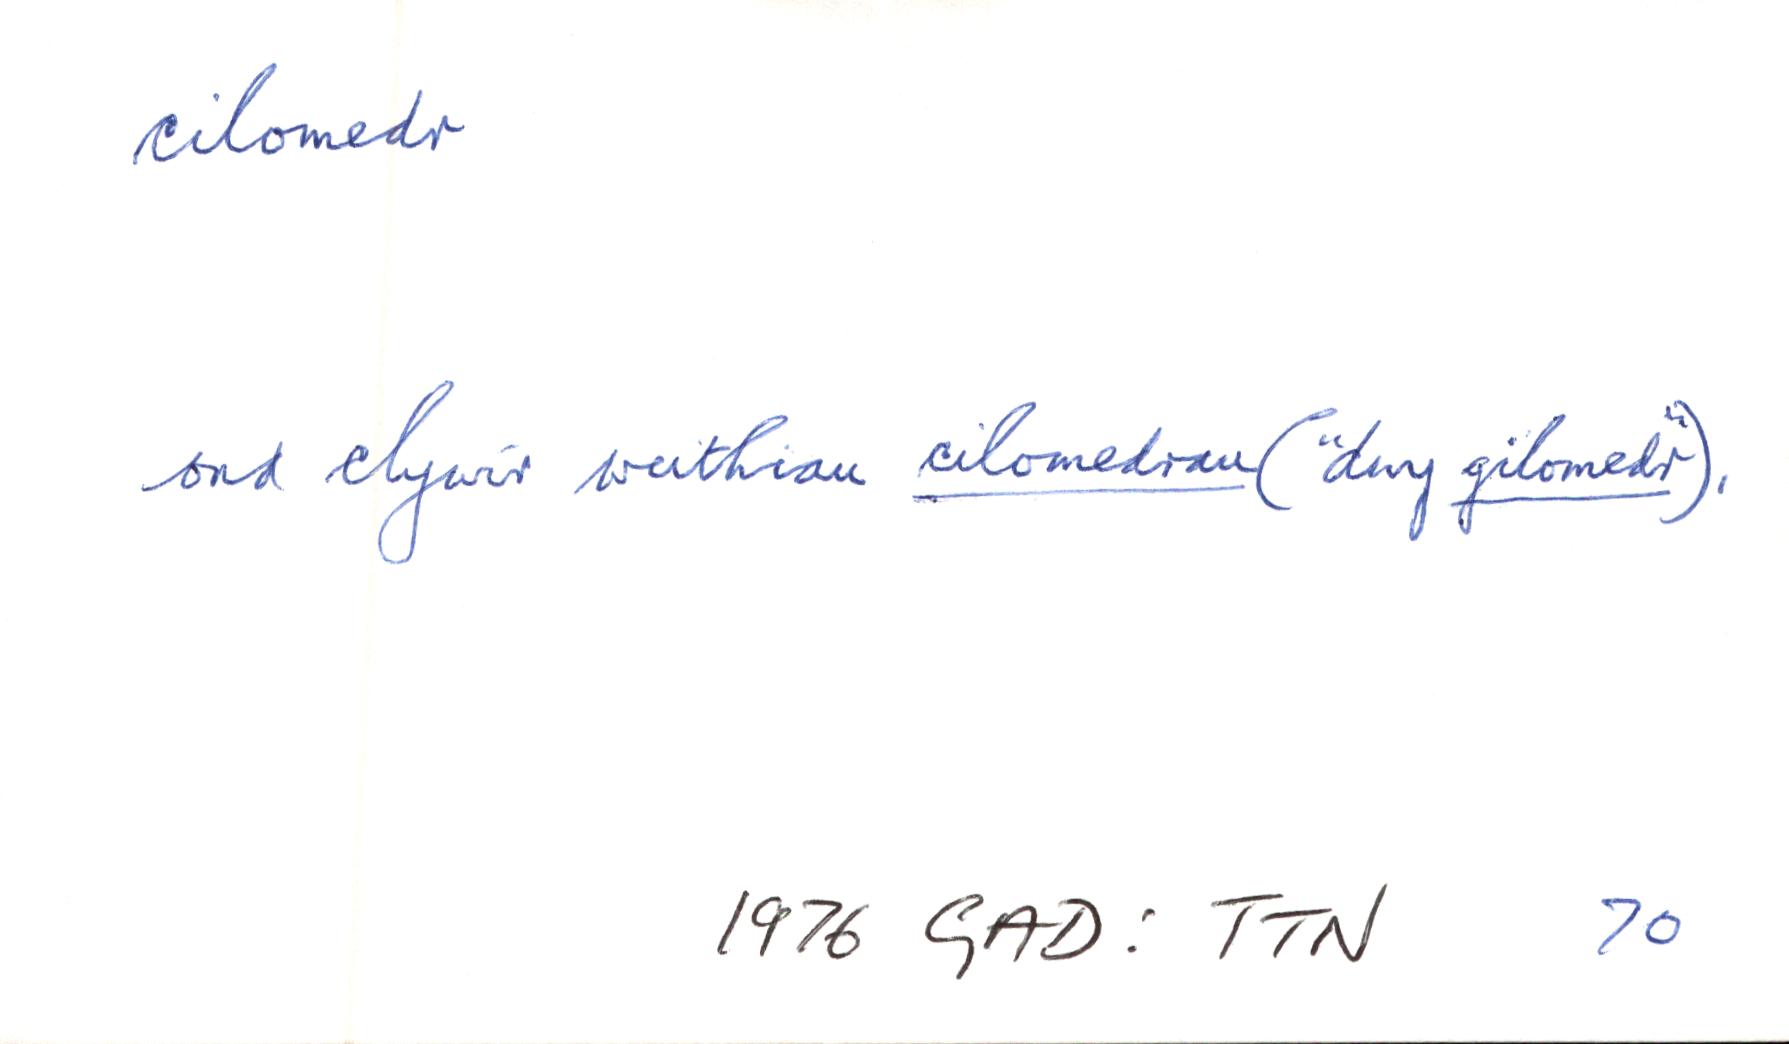 cilomedr
ond clywir weithiau cilomedrau ("dwy gilomedr").
1976 GAD: TTN 70